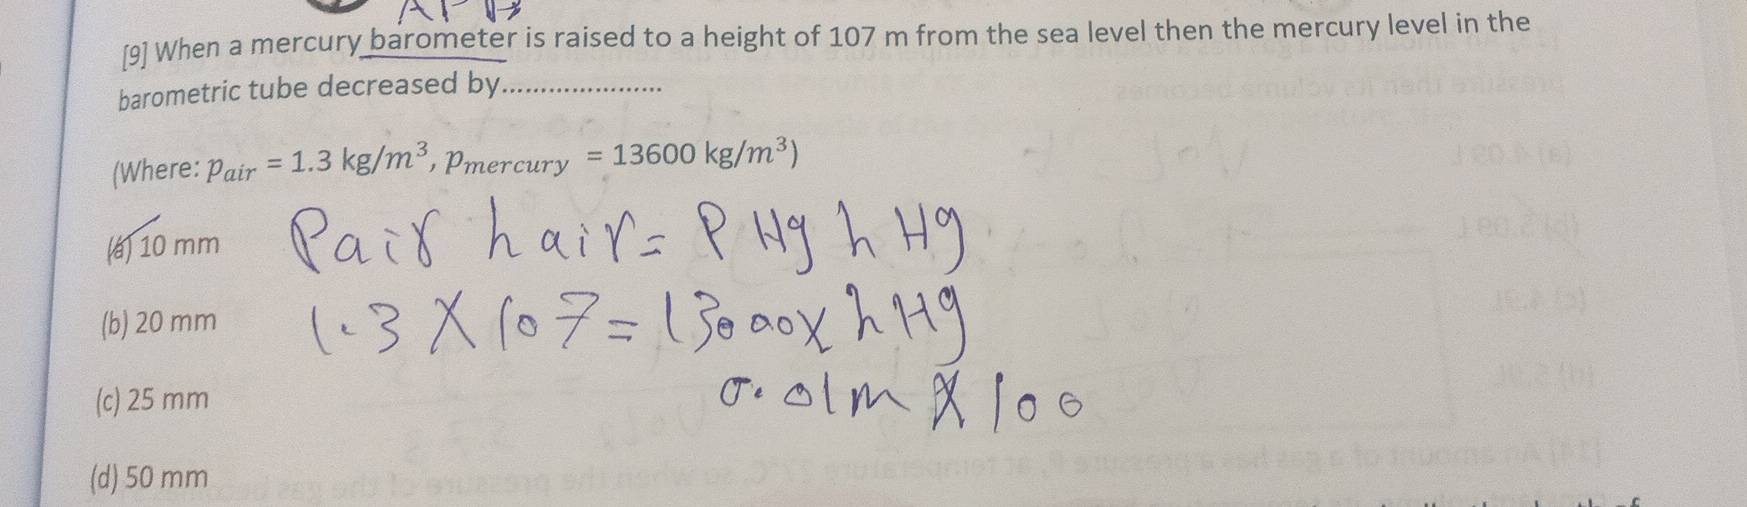 [9] When a mercury barometer is raised to a height of 107 m from the sea level then the mercury level in the
barometric tube decreased by.....................
(Where: p_air = 1.3 kg/m³, p_mercury = 13600 kg/m³)
(a) 10 mm
Pair hair = P Hg h Hg
(b) 20 mm
1.3 X 107 = 13000 X h Hg
(c) 25 mm
0.01m X 100
(d) 50 mm